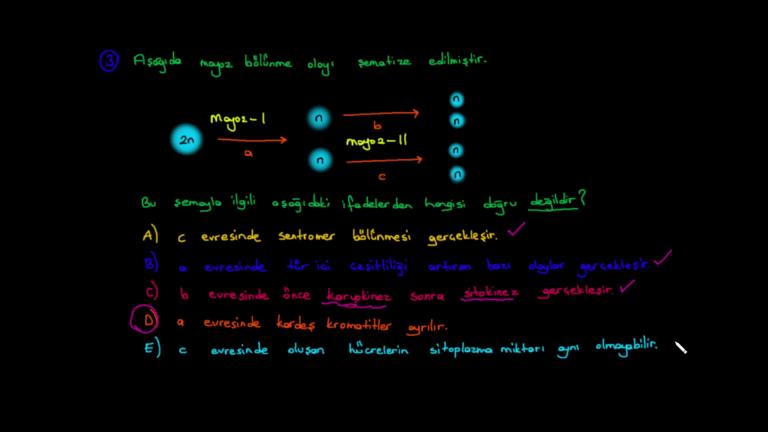 3 Aşağıda mayoz bölünme olayı şematize edilmiştir.
2n
Mayoz-I
a
n
n
b
Mayoz-II
c
n
n
n
n
Bu şemayla ilgili aşağıdaki ifadelerden hangisi doğru değildir?
A) c evresinde sentromer bölünmesi gerçekleşir.
B) a evresinde tür içi çeşitliliği artıran bazı olaylar gerçekleşir
C) b evresinde önce karyokinez sonra sitokinez gerçekleşir.
D) a evresinde kardeş kromatitler ayrılır.
E) c evresinde oluşan hücrelerin sitoplazma miktarı aynı olmayabilir.